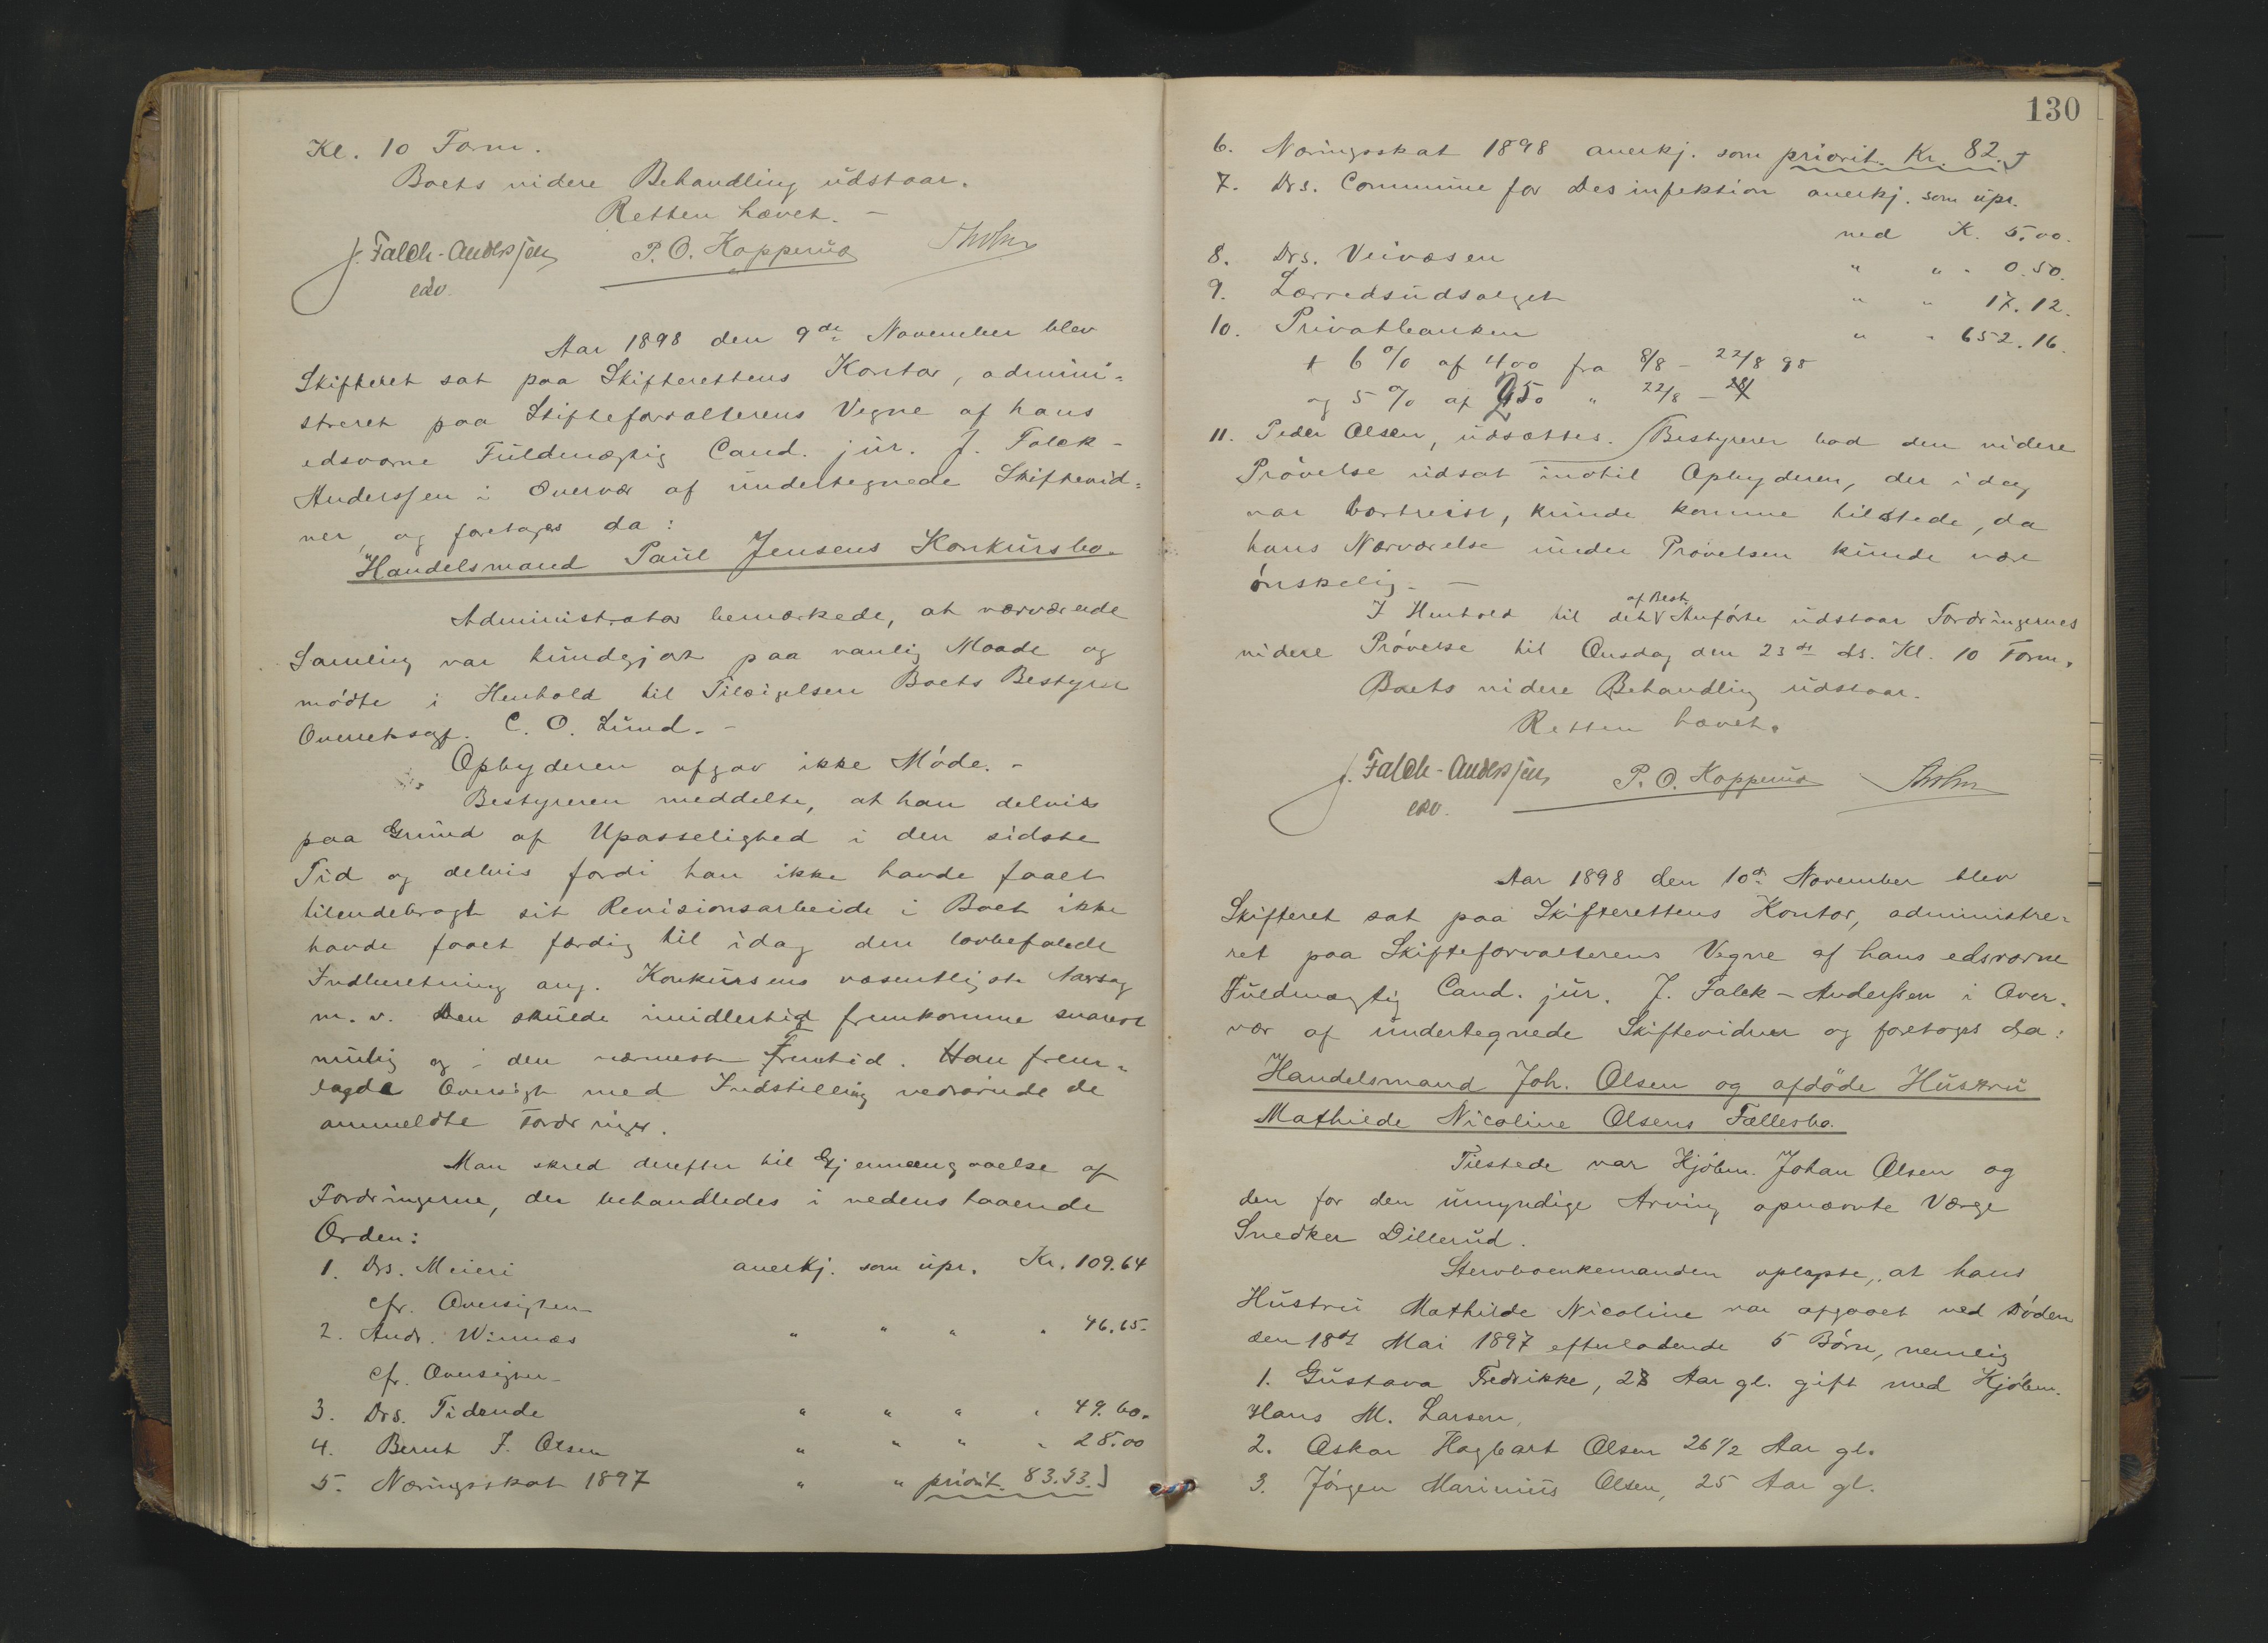 Kl. 10 Form.
Boets videre Behandling udstaar.
Retten hævet. –
J. Falck-Anderssen P. O. Kopperud
edv.
Aar 1898 den 9de November blev
Skifteret sat paa Skifterettens Kontor, admini-
streret paa Skifteforvalterens Vegne af hans
edsvorne Fuldmægtig Cand. jur. J. Falck-
Anderssen i Overvær af undertegnede Skiftevid-
ner, og foretoges da:
Handelsmand Paul Jensens Konkursbo.
Administrator bemærkede, at nærværende
Samling var kundgjort paa vanlig Maade og
mødte i Henhold til Tilsigelsen Boets Bestyrer
Overretssagf. C. O. Lund. –
Opbyderen afgav ikke Møde. –
Bestyreren meddelte, at han delvis
paa Grund af Upasselighed i den sidste
Tid og delvis fordi han ikke havde faaet
tilendebragt sit Revisionsarbeide i Boet ikke
havde faaet færdig til idag den lovbefalede
Indberetning ang. Konkursens væsentligste Aarsag
m. v. Den skulde imidlertid fremkomme snarest
mulig og i den nærmeste Fremtid. Han frem-
lagde Oversigt med Indstilling vedrørende de
anmeldte Fordringer.
Man skred derefter til Gjennemgaaelse af
Fordringerne, der behandledes i nedenstaaende
Orden:
1. Drs. Meieri anerkj. som upr. Kr. 109.64
cfr. Oversigten
2. Andr. Winnæs " " " " 46.65.
cfr. Oversigten
3. Drs. Tidende " " " " 49.60.
4. Bernt J. Olsen " " " " 28.00
5. Næringsskat 1897 " " priorit. 83.33.
130
6. Næringsskat 1898 anerkj. som priorit. Kr. 82.
7. Drs. Commune for Desinfektion anerkj. som upr.
med K. 5.00.
8. Drs. Veivæsen " " " 0.50.
9. Lærredsudsalget " " 17.12.
10. Privatbanken " " 652.16.
+ 6 % af 400 fra 8/8 – 22/8 98
og 5 % af 250 " 22/8 –
11. Peder Olsen, udsættes. Bestyreren bad den videre
Prøvelse udsat indtil Opbyderen, der idag
var bortreist, kunde komme tilstede, da
hans Nærværelse under Prøvelsen kunde være
ønskelig. –
af Best.
I Henhold til det Anførte udstaar Fordringernes
videre Prøvelse til Onsdag den 23de ds. Kl. 10 Form.
Boets videre Behandling udstaar.
Retten hævet.
J. Falck-Anderssen P. O. Kopperud
edv.
Aar 1898 den 10de November blev
Skifteret sat paa Skifterettens Kontor, administre-
ret paa Skifteforvalterens Vegne af hans edsvorne
Fuldmægtig Cand. jur. J. Falck-Anderssen i Over-
vær af undertegnede Skiftevidner og foretoges da:
Handelsmand Joh. Olsen og afdøde Hustru
Mathilde Nicoline Olsens Fællesbo.
Tilstede var Kjøbm. Johan Olsen og
den for den umyndige Arving opnævnte Værge
Snedker Dillerud.
Stervboenkemanden oplyste, at hans
Hustru Mathilde Nicoline var afgaaet ved Døden
den 18de Mai 1897 efterladende 5 Børn, nemlig
1. Gustava Fredrikke, 28 Aar gl. gift med Kjøbm.
Hans M. Larsen,
2. Oskar Hagbart Olsen 26 1/2 Aar gl.
3. Jørgen Marinius Olsen, 25 Aar gl.